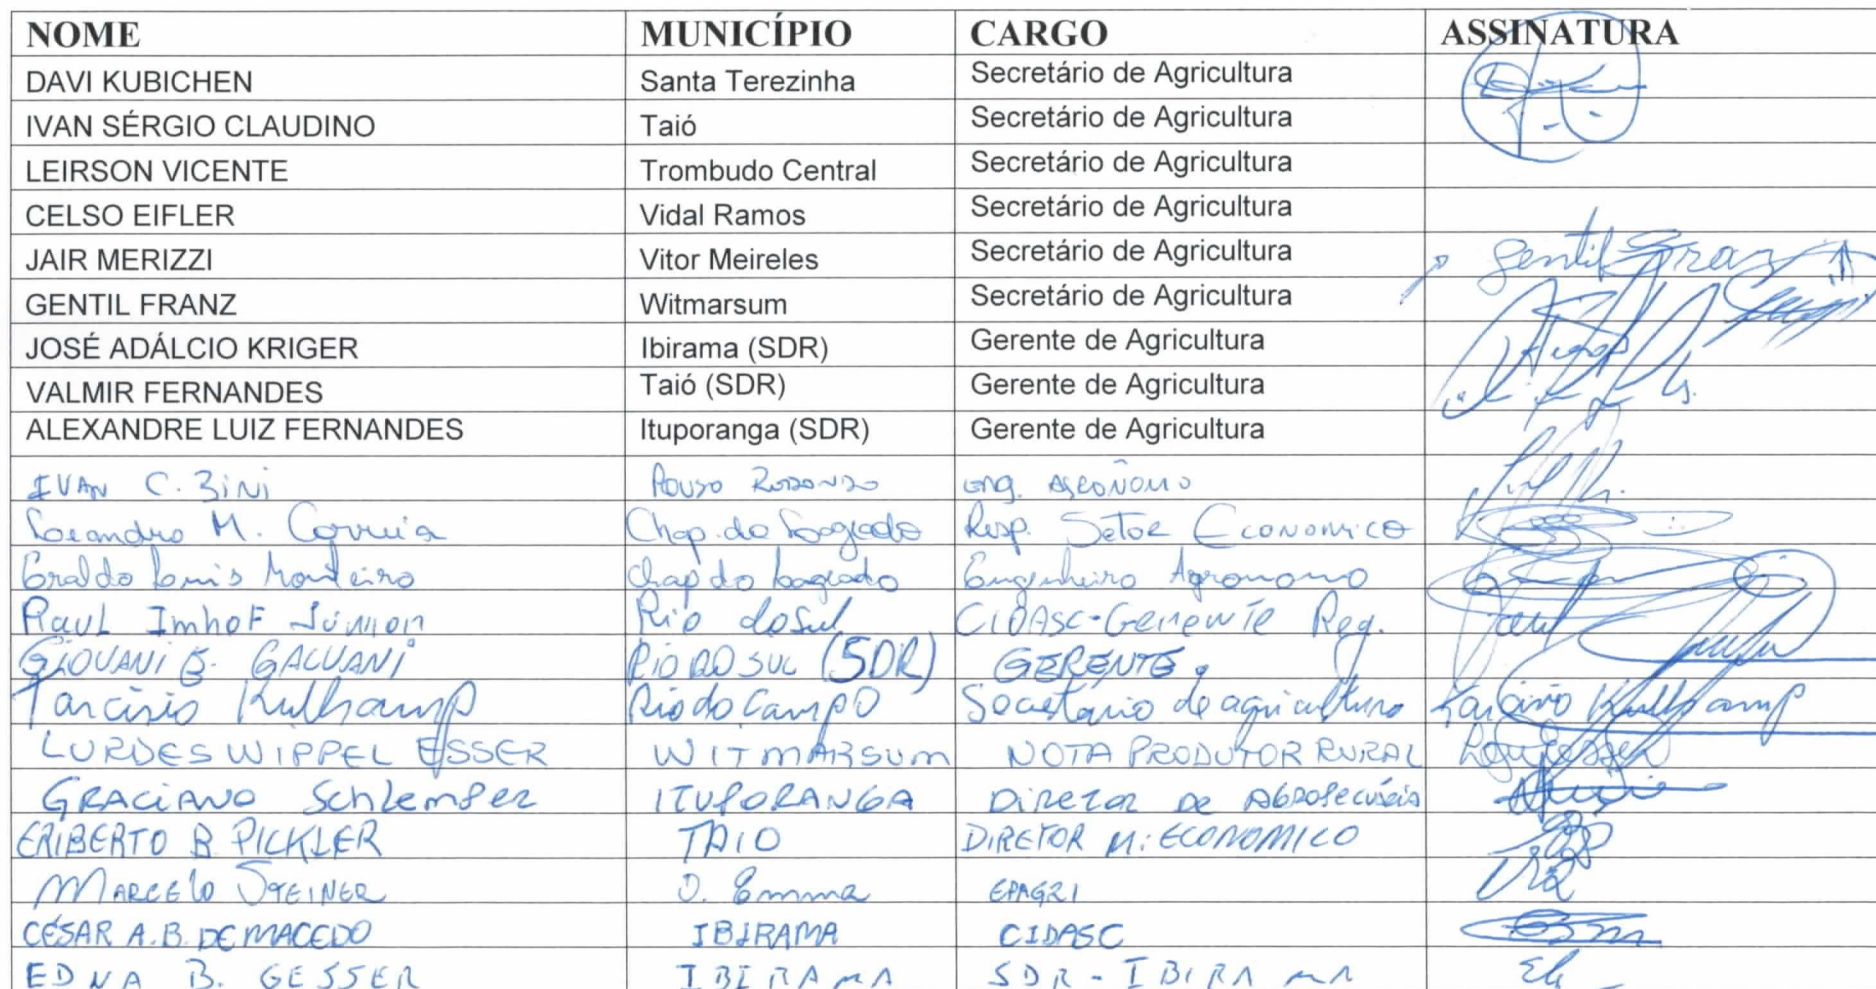 NOME MUNICÍPIO CARGO ASSINATURA
DAVI KUBICHEN Santa Terezinha Secretário de Agricultura
IVAN SÉRGIO CLAUDINO Taió Secretário de Agricultura
LEIRSON VICENTE Trombudo Central Secretário de Agricultura
CELSO EIFLER Vidal Ramos Secretário de Agricultura
JAIR MERIZZI Vitor Meireles Secretário de Agricultura
GENTIL FRANZ Witmarsum Secretário de Agricultura Gentil Franz
JOSÉ ADÁLCIO KRIGER Ibirama (SDR) Gerente de Agricultura
VALMIR FERNANDES Taió (SDR) Gerente de Agricultura
ALEXANDRE LUIZ FERNANDES Ituporanga (SDR) Gerente de Agricultura
IVAN C. Zini Pouso Redondo eng. Agronomo
Leandro M. Correia Chap. do Lageado Resp. Setor Economico
Geraldo Luis Monteiro Chap do Lageado Engenheiro Agronomo
Raul Imhof Júnior Rio do Sul CIDASC-Gerente Reg.
GIOVANI B. GALVANI RIO DO SUL (SDR) GERENTE.
Tarcisio Kulkamp Rio do Campo Secretario de agricultura Tarcisio Kulkamp
LURDES WIPPEL ESSER WITMARSUM NOTA PRODUTOR RURAL
GRACIANO Schlemper ITUPORANGA Diretor de Agropecuária
ERIBERTO B. PICKLER TAIO DIRETOR M. ECONOMICO
MARCELO STEINER D. Emma EPAGRI
CÉSAR A.B. DE MACEDO IBIRAMA CIDASC
EDNA B. GESSER IBIRAMA SDR - IBIRAMA